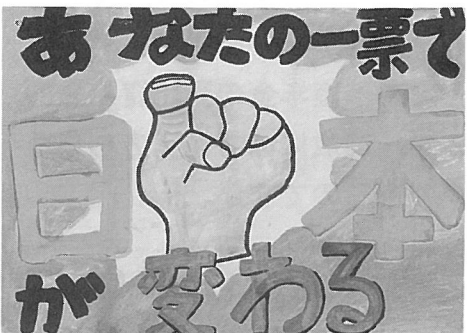 あなたの一票で
日本
が変わる